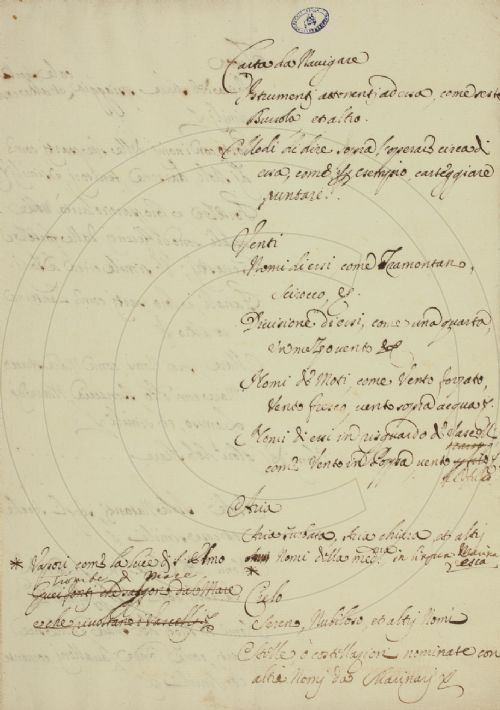 Carta da Nauigare
Istrumenti attenenti ad essa, come
Bussola et altro.
Modi di dire sopra l'operar circa di
essa, come per esempio, carteggiare
puntare.
Venti
Nomi di essi come Tramontano,
Scirocco, &.
Diuisione di essi, come una quarta,
un mezzo vento &
Nomi de Moti, come Vento forzato,
Vento fresco, vento sopra acqua &.
Nomi di essi in risguardo de Vascelli
come Vento in Poppa vento
Aria
Aria turbata, Aria chiara, et altri
Nomi della med.ma in lingua Marina
resca
* Vapori come la luce di S. Elmo
Trombe di Mare
che da Mare
Vascelli
*
Cielo
Sereno, Nubiloso, et altri Nomi
Stelle ò costellazioni nominate con
altri Nomi da Marinari &